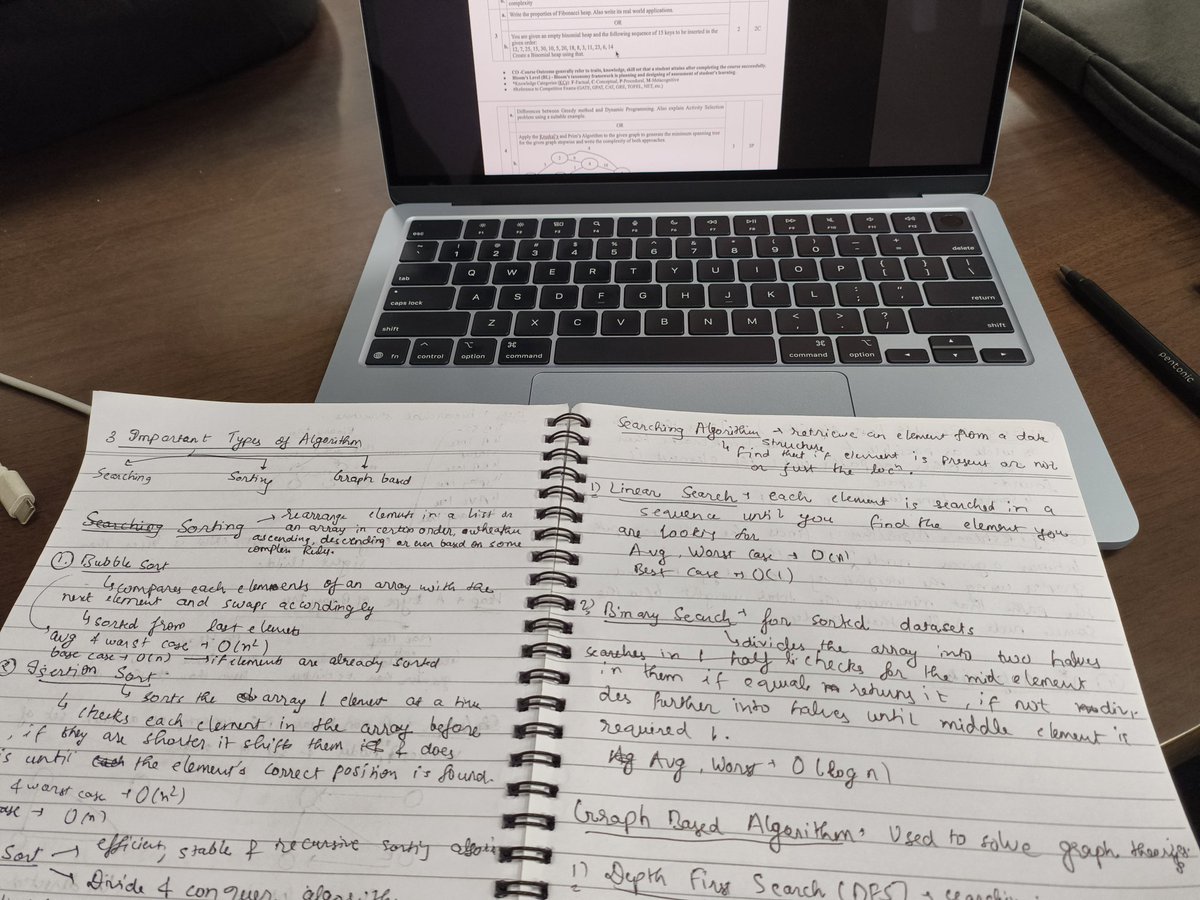 complexity
a. Write the properties of Fibonacci heap. Also write its real world applications.
OR
3
You are given an empty binomial heap and the following sequence of 15 keys to be inserted in the
given order:
b. 12, 7, 25, 15, 30, 10, 5, 20, 18, 8, 3, 11, 23, 6, 14
Create a Binomial heap using that.
2 2C
CO -Course Outcome generally refer to traits, knowledge, skill set that a student attains after completing the course successfully.
Bloom's Level (BL) - Bloom's taxonomy framework is planning and designing of assessment of student's learning.
*Knowledge Categories (KCs): F-Factual, C-Conceptual, P-Procedural, M-Metacognitive
#Reference to Competitive Exams (GATE, GPAT, CAT, GRE, TOFEL, NET, etc.)
a. Differences between Greedy method and Dynamic Programming. Also explain Activity Selection
problem using a suitable example.
OR
4
Apply the Kruskal's and Prim's Algorithm to the given graph to generate the minimum spanning tree
for the given graph stepwise and write the complexity of both approaches.
b.
3 3P
esc F1 F2 F3 F4 F5 F6 F7 F8 F9 F10 F11 F12
~ ` ! 1 @ 2 # 3 $ 4 % 5 ^ 6 & 7 * 8 ( 9 ) 0 _ - + = delete
tab Q W E R T Y U I O P { [ } ] | \
caps lock A S D F G H J K L : ; " ' return
shift Z X C V B N M < , > . ? / shift
fn control option command command option
pentonic
3 Important Types of Algorithm
Searching Sorting Graph based
Searching Sorting → rearrange elements in a list or
an array in certain order, wheather
ascending, descending or even based on some
complex Rules.
1. Bubble Sort
↳ compares each elements of an array with the
next element and swaps accordingly
↳ sorted from last elements
avg & worst case → O(n²)
base case → O(n) → if elements are already sorted
2 Isertion Sort
↳ sorts the array 1 element at a time
↳ checks each element in the array before
, if they are shorter it shifts them & does
is until the element's correct position is found.
& worst case → O(n²)
ase → O(n)
Sort → efficient, stable & recursive sorting
→ Divide & conquer
Searching Algorithm → retrieve an element from a data
structure
↳ find that if element is present or not
or just the locⁿ.
1) Linear Search → each element is searched in a
sequence until you find the element you
are looking for
Avg, Worst case → O(n)
Best case → O(1)
2) Binary Search → for sorted datasets
↳ divides the array into two halves
searches in 1 half & checks for the mid element
in them if equal returns it, if not divi-
des further into halves until middle element is
required 1.
Avg, Worst → O(log n)
Graph Based Algorithm: Used to solve graph
1) Depth First Search (DFS) →